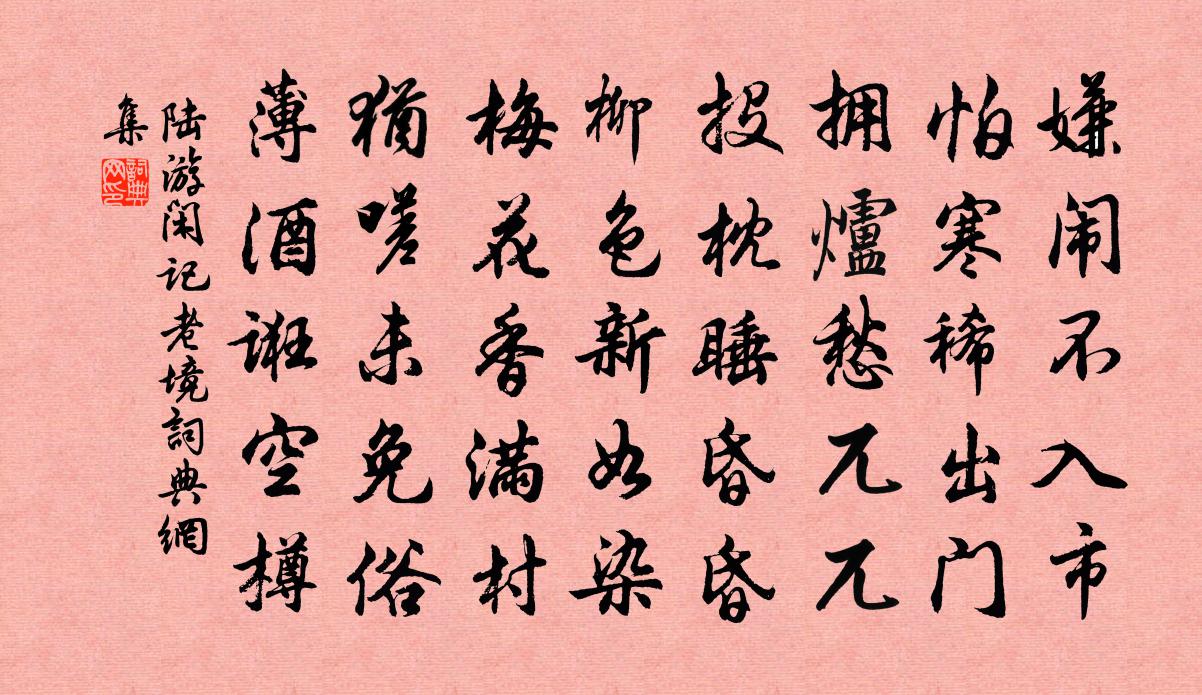 嫌闹不入市
怕寒稀出门
拥爐愁兀兀
投枕睡昏昏
柳色新如染
梅花香满村
猶嗟未免俗
薄酒诳空樽
陆游闲记老境詞典網
集
詞典
网印